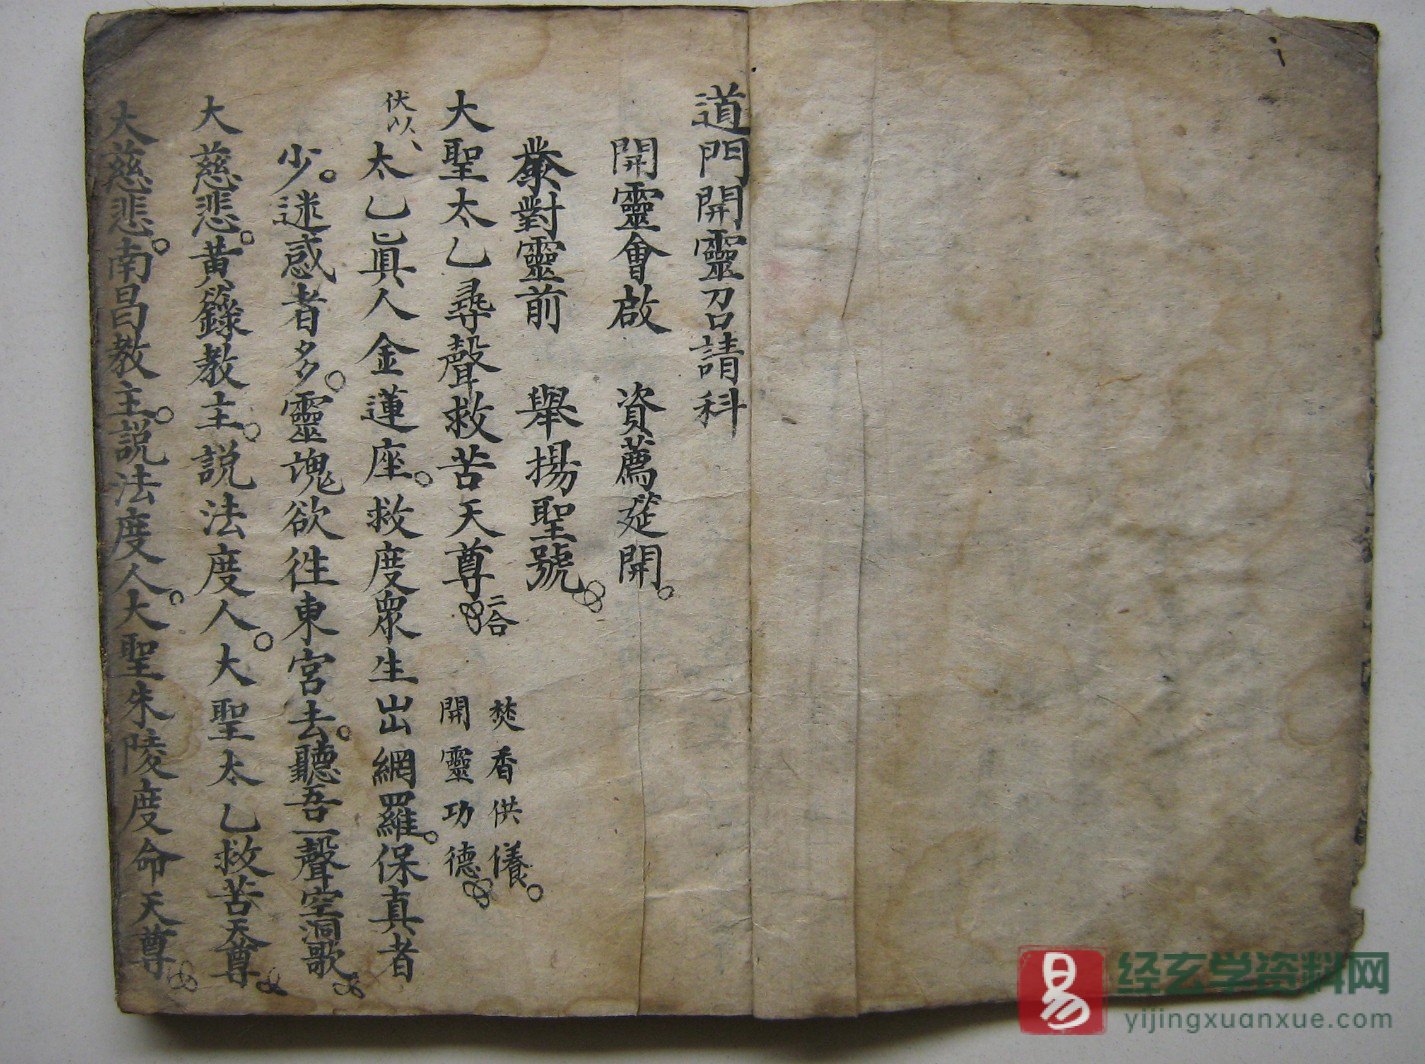 道門開靈召請科
開靈會啟　資薦筵開。
眾對靈前　舉揚聖號。
大聖太乙尋聲救苦天尊 二合 焚香供儀。
開靈功德
伏以、太乙真人金蓮座。救度眾生出網羅。保真者
少。迷惑者多。靈魂欲徃東宮去。聽吾一聲空洞歌
大慈悲。黃籙教主。說法度人。大聖太乙救苦天尊
大慈悲。南昌教主。説法度人。大聖朱陵度命天尊
易
经玄学资料网
yijingxuanxue.com